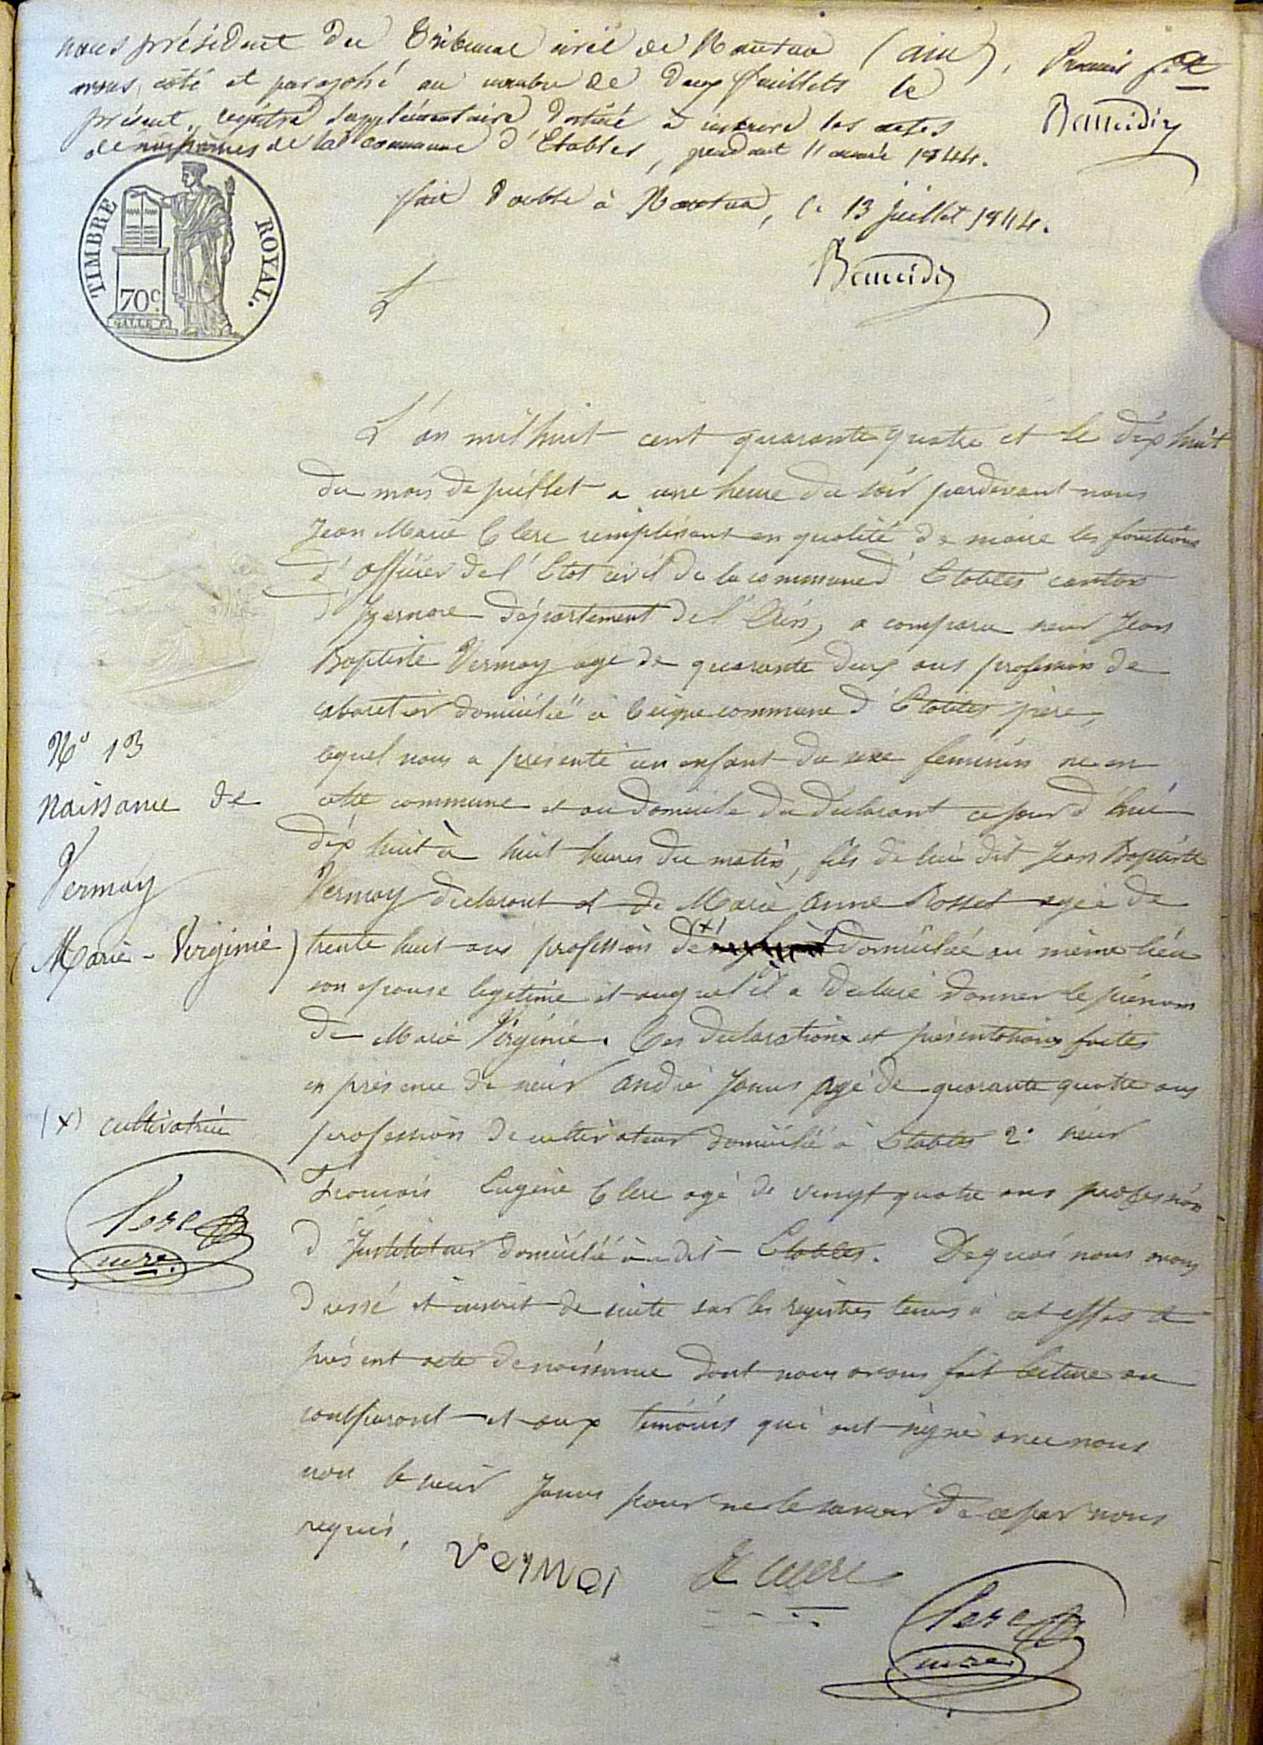 nous président du Tribunal civil de Nantua (ain),
avons, côté et paraphé au nombre de deux feuillets le
présent registre supplémentaire destiné à inscrire les actes
de naissances de la commune d'Etables, pendant l'année 1844.
fait double à Nantua, le 13 juillet 1844.
Premier f.et
TIMBRE ROYAL.
70c
L'an mil huit cent quarante quatre et le dix huit
du mois de juillet a une heure du soir pardevant nous
Jean Marie Clerc remplissant en qualité de maire les fonctions
d'officier de l'Etat civil de la commune d'Etables canton
d'Izernore département de l'Ain, a comparu sieur Jean
Baptiste Vermay age de quarante deux ans profession de
cabaretier domicilié à Ceigne commune d'Etables père,
lequel nous a présenté un enfant du sexe feminin ne en
cette commune et au domicile du déclarant ce jourd'hui
dix huit à huit heures du matin, fils de lui dit Jean Baptiste
Vermay declarant et de Marie Anne Rosset agée de
trente huit ans profession de (x) domiciliée au même lieu
son epouse legitime et auquel il a declaré donner le prénom
de Marie Virginie. Ces declaration et présentation faites
en présence de sieur André Janus agé de quarante quatre ans
profession de cultivateur domicilié à Etables 2° sieur
François Eugène Clerc agé de vingt quatre ans profession
d'Instituteur domicilié à dit Etables. De quoi nous avons
dressé et inscrit de suite sur les registres tenus à cet effet le
présent acte de naissance dont nous avons fait lecture au
comparant et aux témoins qui ont signé avec nous
non le sieur Janus pour ne le savoir de ce par nous
requis.
N° 13
naissance de
Vermay
(Marie-Virginie)
(x) cultivatrice
Clerc
mre.
vermei
Clerc
Clerc
mre.